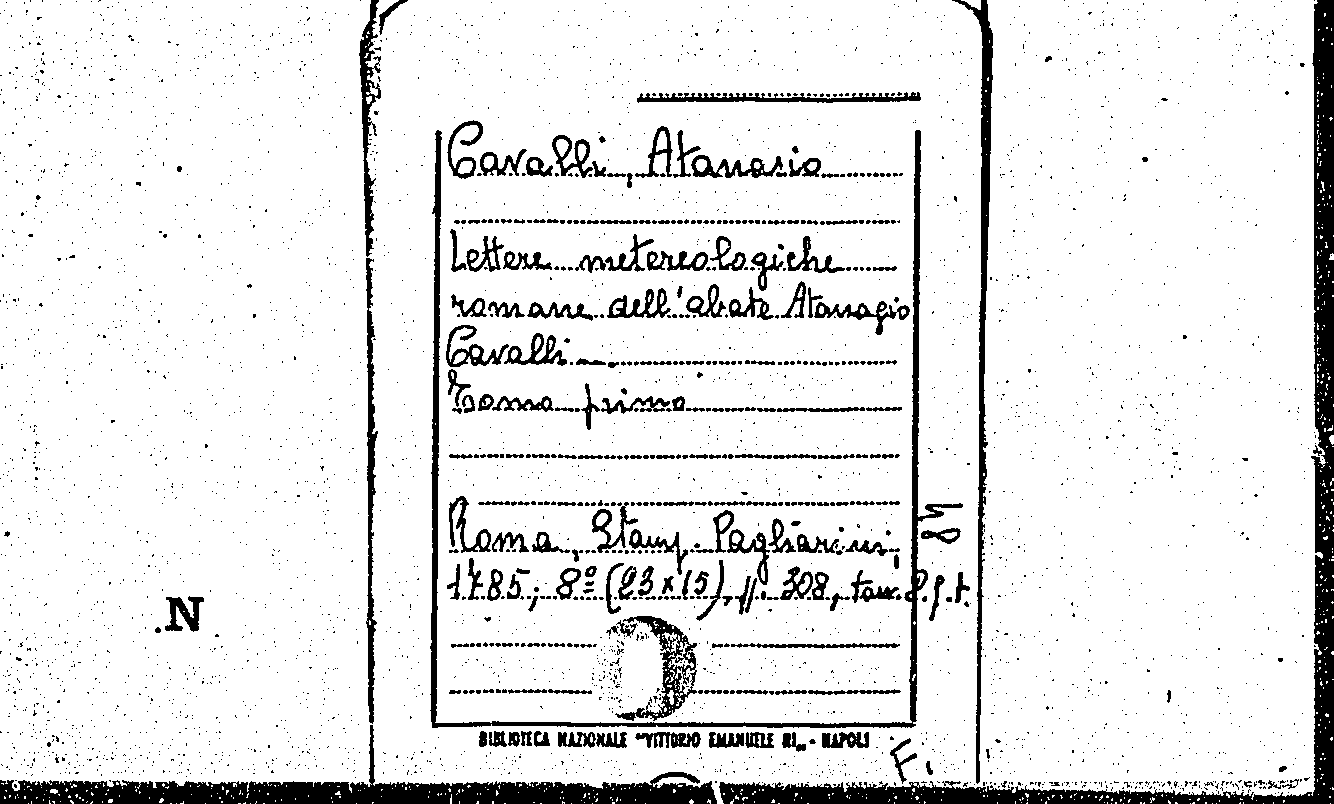 Cavalli, Atanasio
Lettere metereologiche
romane dell'abate Atanagio
Cavalli...
Tomo primo
Roma, Stamp. Pagliarini,
1785; 8º (23x15), pp. 308, tav. 2 f.t.
BIBLIOTECA NAZIONALE "VITTORIO EMANUELE III„ - NAPOLI
.N
F.